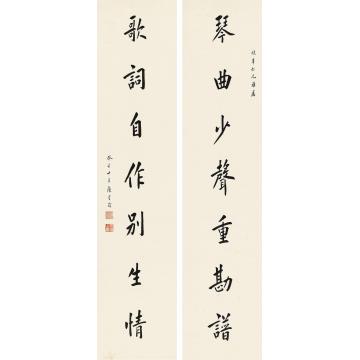 琴曲少聲重勘譜
歌詞自作別生情